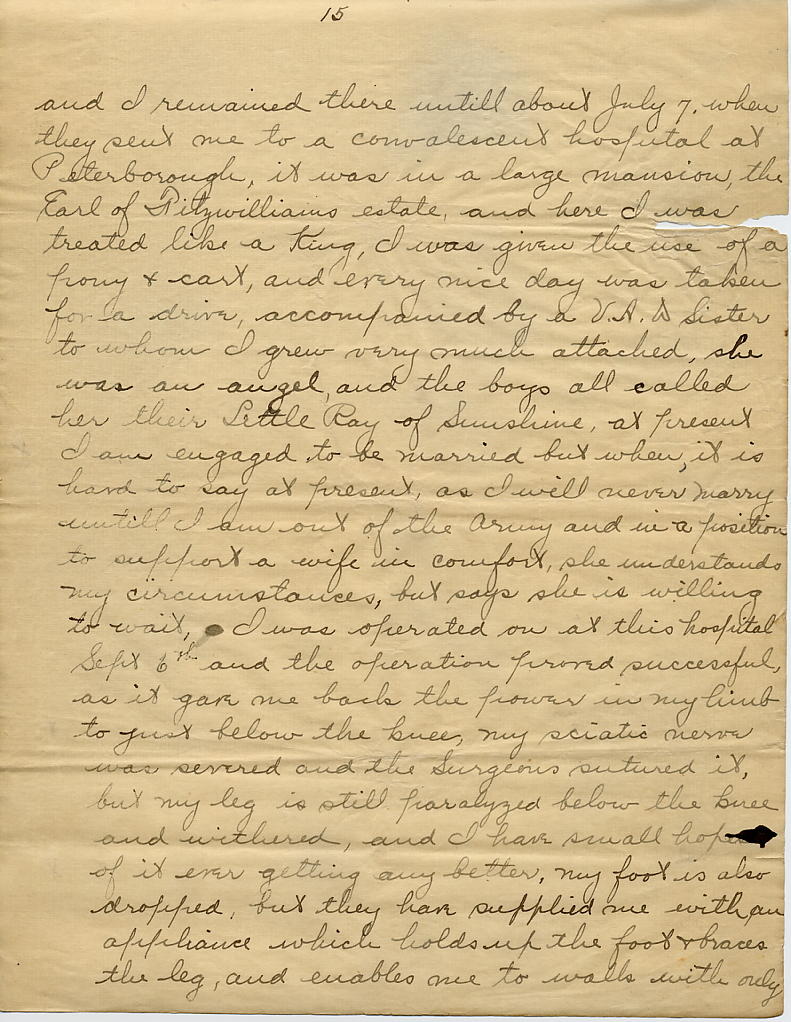 15
and I remained there untill about July 7. when
they sent me to a convalescent hospital at
Peterborough, it was in a large mansion, the
Earl of Fitzwilliams estate, and here I was
treated like a King, I was given the use of a
pony & cart, and every nice day was taken
for a drive, accompanied by a V.A.D Sister
to whom I grew very much attached, she
was an angel, and the boys all called
her their Little Ray of Sunshine, at present
I am engaged to be married but when, it is
hard to say at present, as I will never marry
untill I am out of the Army and in a position
to support a wife in comfort, she understands
my circumstances, but says she is willing
to wait, I was operated on at this hospital
Sept 6th and the operation proved successful,
as it gave me back the power in my limb
to just below the knee, my sciatic nerve
was severed and the Surgeons sutured it,
but my leg is still paralyzed below the knee
and withered, and I have small hopes
of it ever getting any better, my foot is also
dropped, but they have supplied me with an
appliance which holds up the foot & braces
the leg, and enables me to walk with only